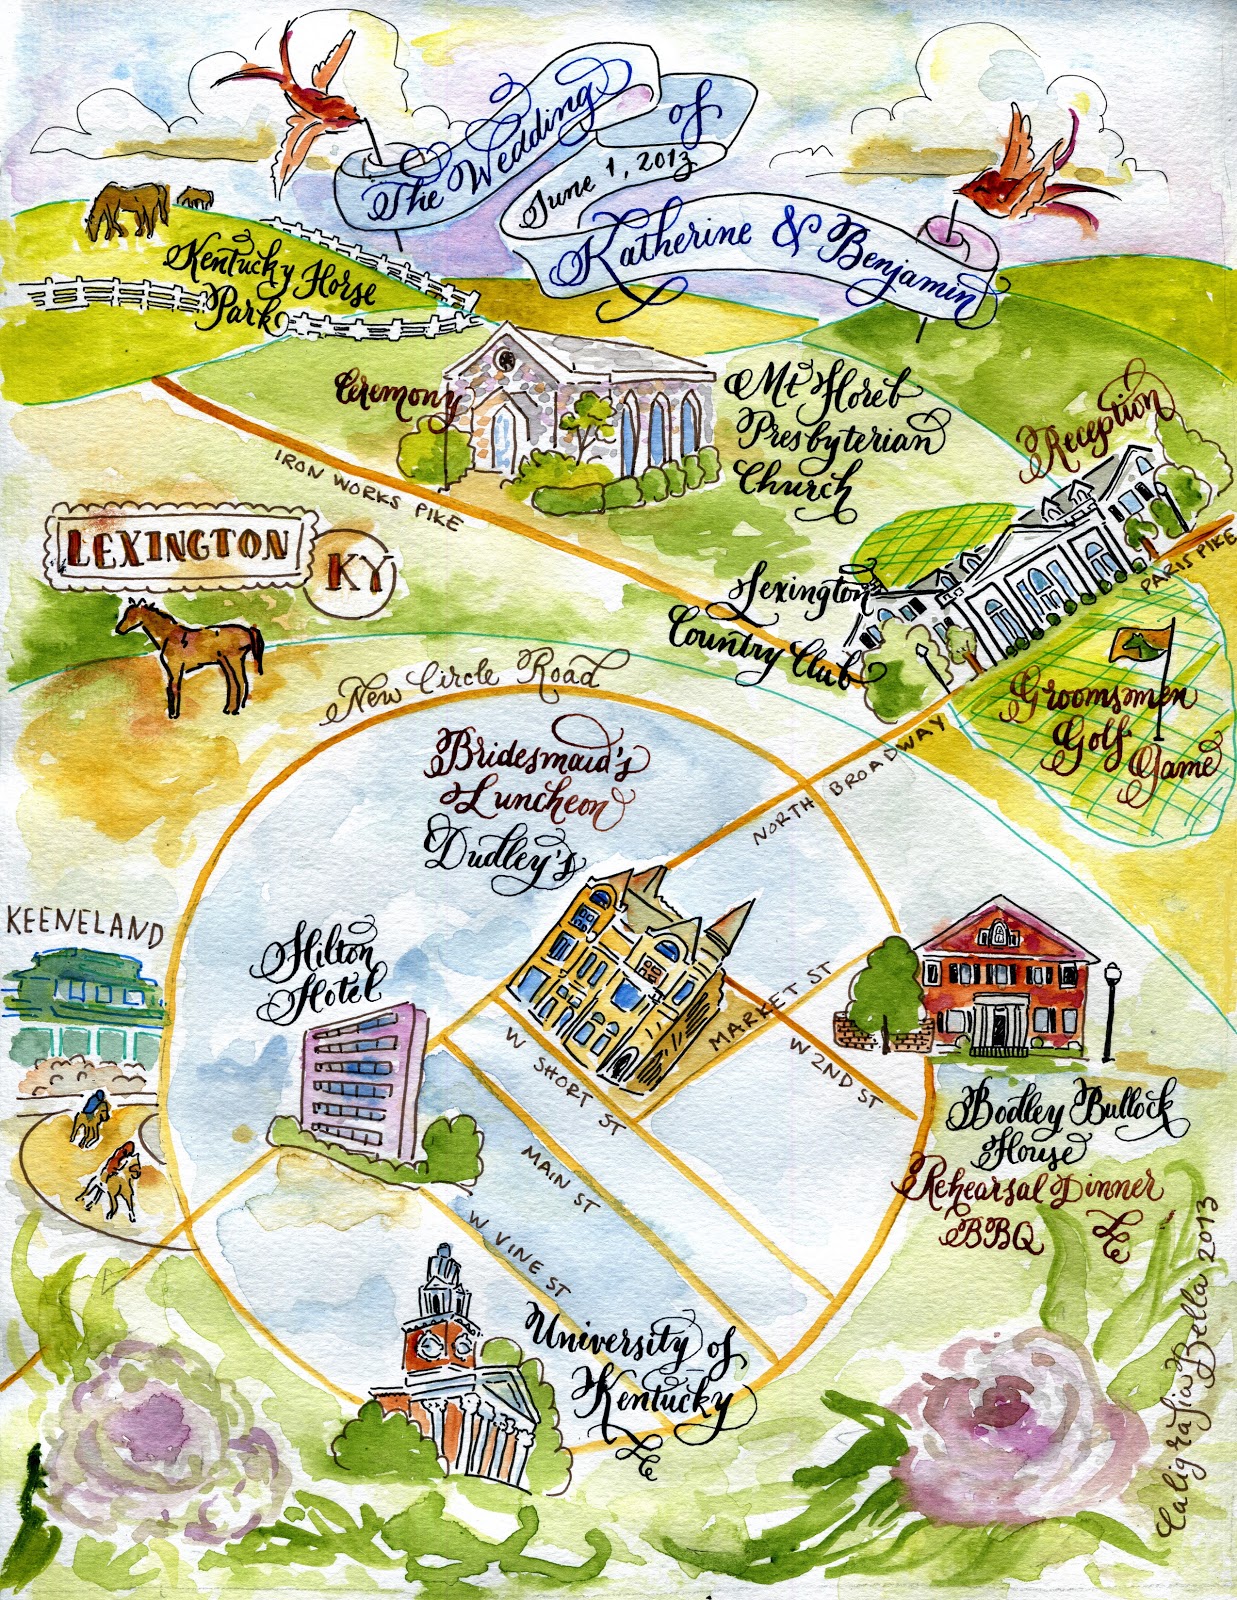 The Wedding of
June 1, 2013
Katherine & Benjamin
Kentucky Horse
Park
Ceremony
Mt Horeb
Presbyterian
Church
Reception
IRON WORKS PIKE
LEXINGTON
KY
Lexington
Country Club
PARIS PIKE
Groomsmen
Golf
Game
New Circle Road
NORTH BROADWAY
Bridesmaid's
Luncheon
Dudley's
KEENELAND
Hilton
Hotel
W SHORT ST
MARKET ST
W 2ND ST
MAIN ST
W VINE ST
Bodley Bullock
House
Rehearsal Dinner
BBQ
University of
Kentucky
Caligrafia Bella 2013